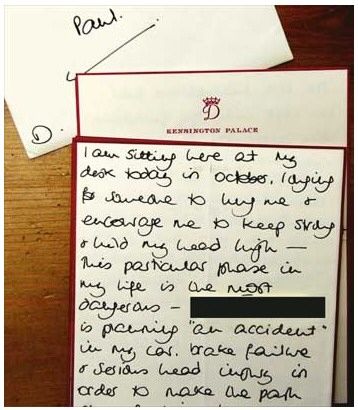 Paul.
D.
D
KENSINGTON PALACE
I am sitting here at my
desk today in october, longing
for someone to hug me &
encourage me to keep strong
& hold my head high —
This particular phase in
my life is the most
dangerous —
is planning "an accident"
in my car. brake failure
& serious head injury in
order to make the path